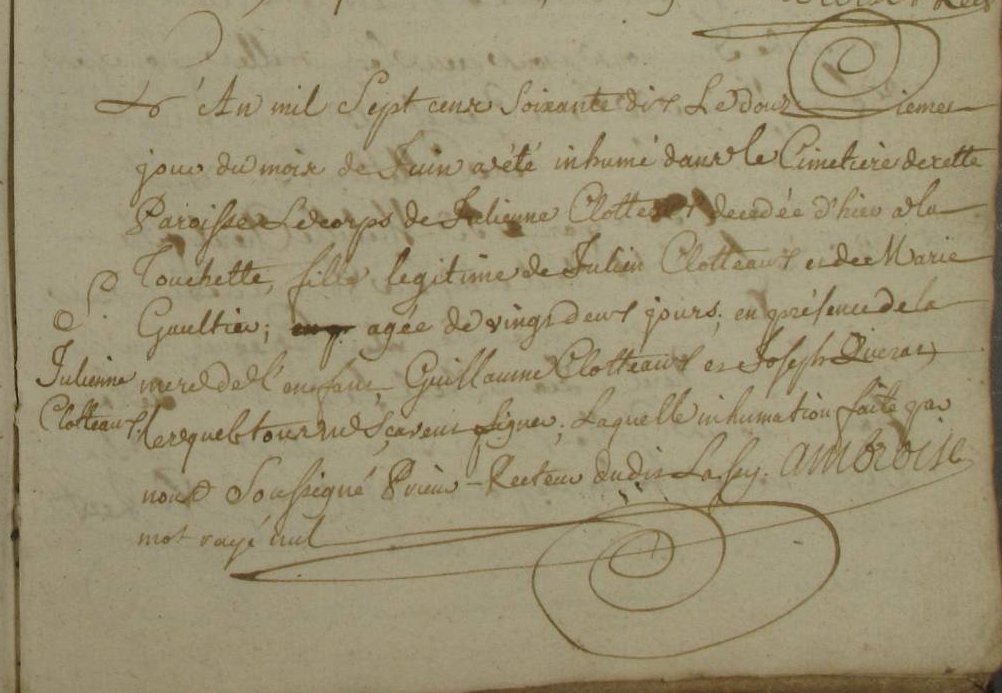 L'An mil Sept cent Soixante dix Le douziemes
jour du mois de Juin a été inhumé dans le Cimetiere de cette
Paroisse Le corps de Julienne Clotteaux decedée d'hier a la
Touchette, fille legitime de Julien Clotteaux et de Marie
Gaultier; agée de vingt deux jours; en présence de la
mere de l'enfant, Guillaume Clotteaux et Joseph
lesquels tous ne sçavent signer; Laquelle inhumation faite par
nous Soussigné Prieur-Recteur dudit Lassy. ambroise
mot rayé nul
Julienne
Clotteaux.